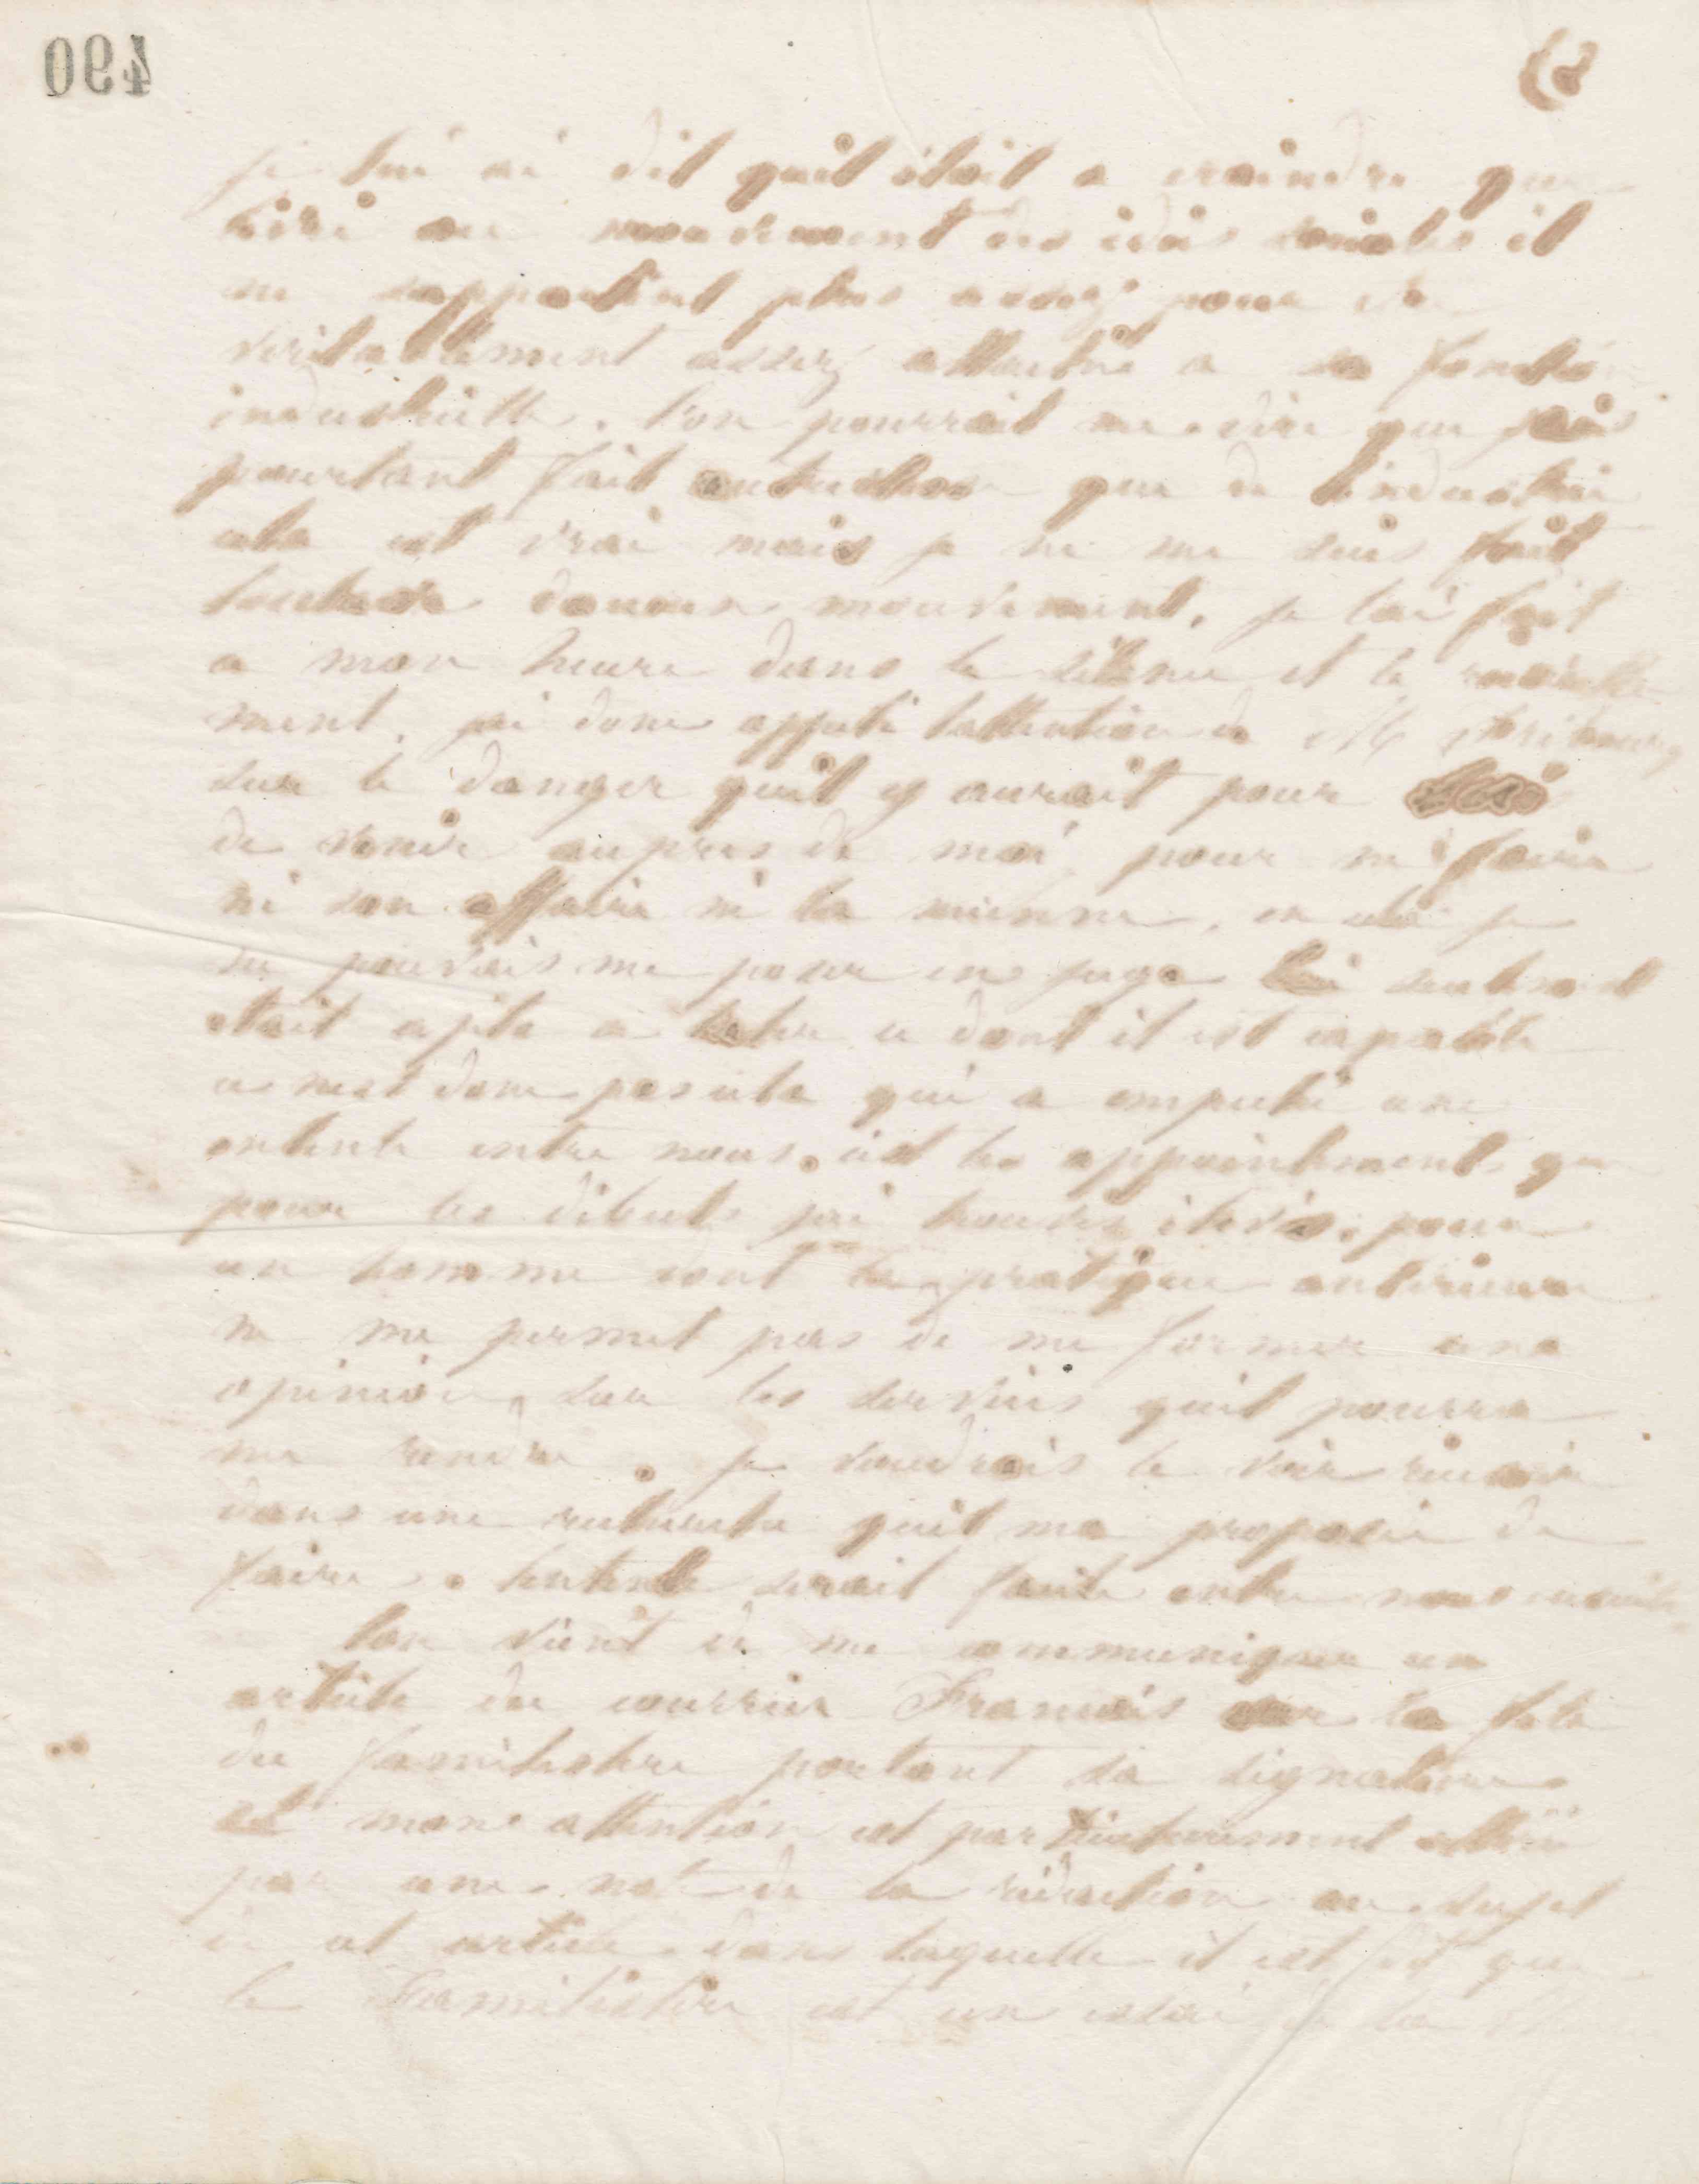 490
je lui ai dit quil était a craindre que
livré au mouvement des idées sociales il
ne sappartint plus assez pour
veritablement assez attaché a sa fonction
industrielle. l'on pourrait me dire que jais
pourtant fait autre chose que de lindustrie
cela est vrai mais je ne me suis fait
dans mouvement. je lai fait
a mon heure dans le silence et le recueille
ment. jai donc appelé lattention de M
sur le danger quil y aurait pour
de venir aupres de moi pour ne faire
ni son affaire ni la mienne. en cela je
ne pouvais me poser en juge lui seulement
était apte a ce dont il est capable
ce nest donc pas cela qui a empeché une
entente entre nous. cest les appointements que
pour les débuts jai trouvés élevés. pour
un homme dont la pratique antérieure
ne me permet pas de me former une
opinion sur les services quil pourra
me rendre. je voudrais le voir réussir
dans une quil ma proposé de
faire. lentente serait faite entre nous ensuite
lon vient de me communiquer un
article du courrier Francais sur la fete
du familistere portant sa signature
et mon attention est particulierement attiré
par une note de la rédaction au sujet
de cet article dans laquelle il est dit que
le Familistère est un essai de la